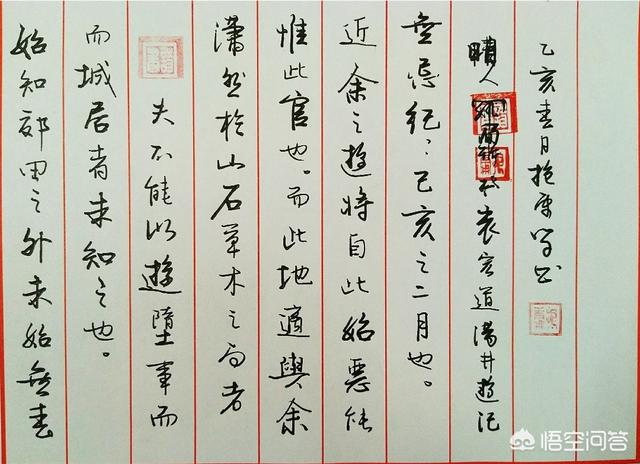 始知郊田之外未始無春
而城居者未知之也。
夫不能以遊墮事而
瀟然於山石草木之間者
惟此官也。而此地適與余
近余之遊將自此始惡能
無忌紀：己亥之二月也。
人 於袁宏道滿井遊記
乙亥春日
悟空问答